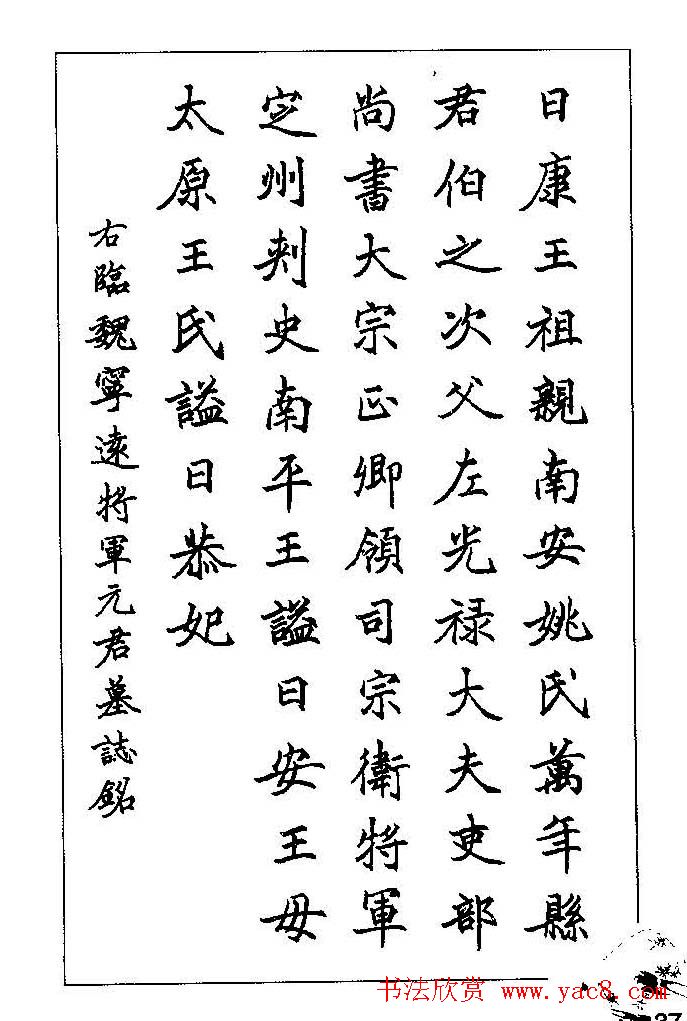 日康王祖親南安姚氏萬年縣
君伯之次父左光禄大夫吏部
尚書大宗正卿領司宗衛將軍
定州刾史南平王謚曰安王毋
太原王氏謚曰恭妃
右臨魏寧遠將軍元君墓誌銘
书法欣赏 www.yac8.com
37